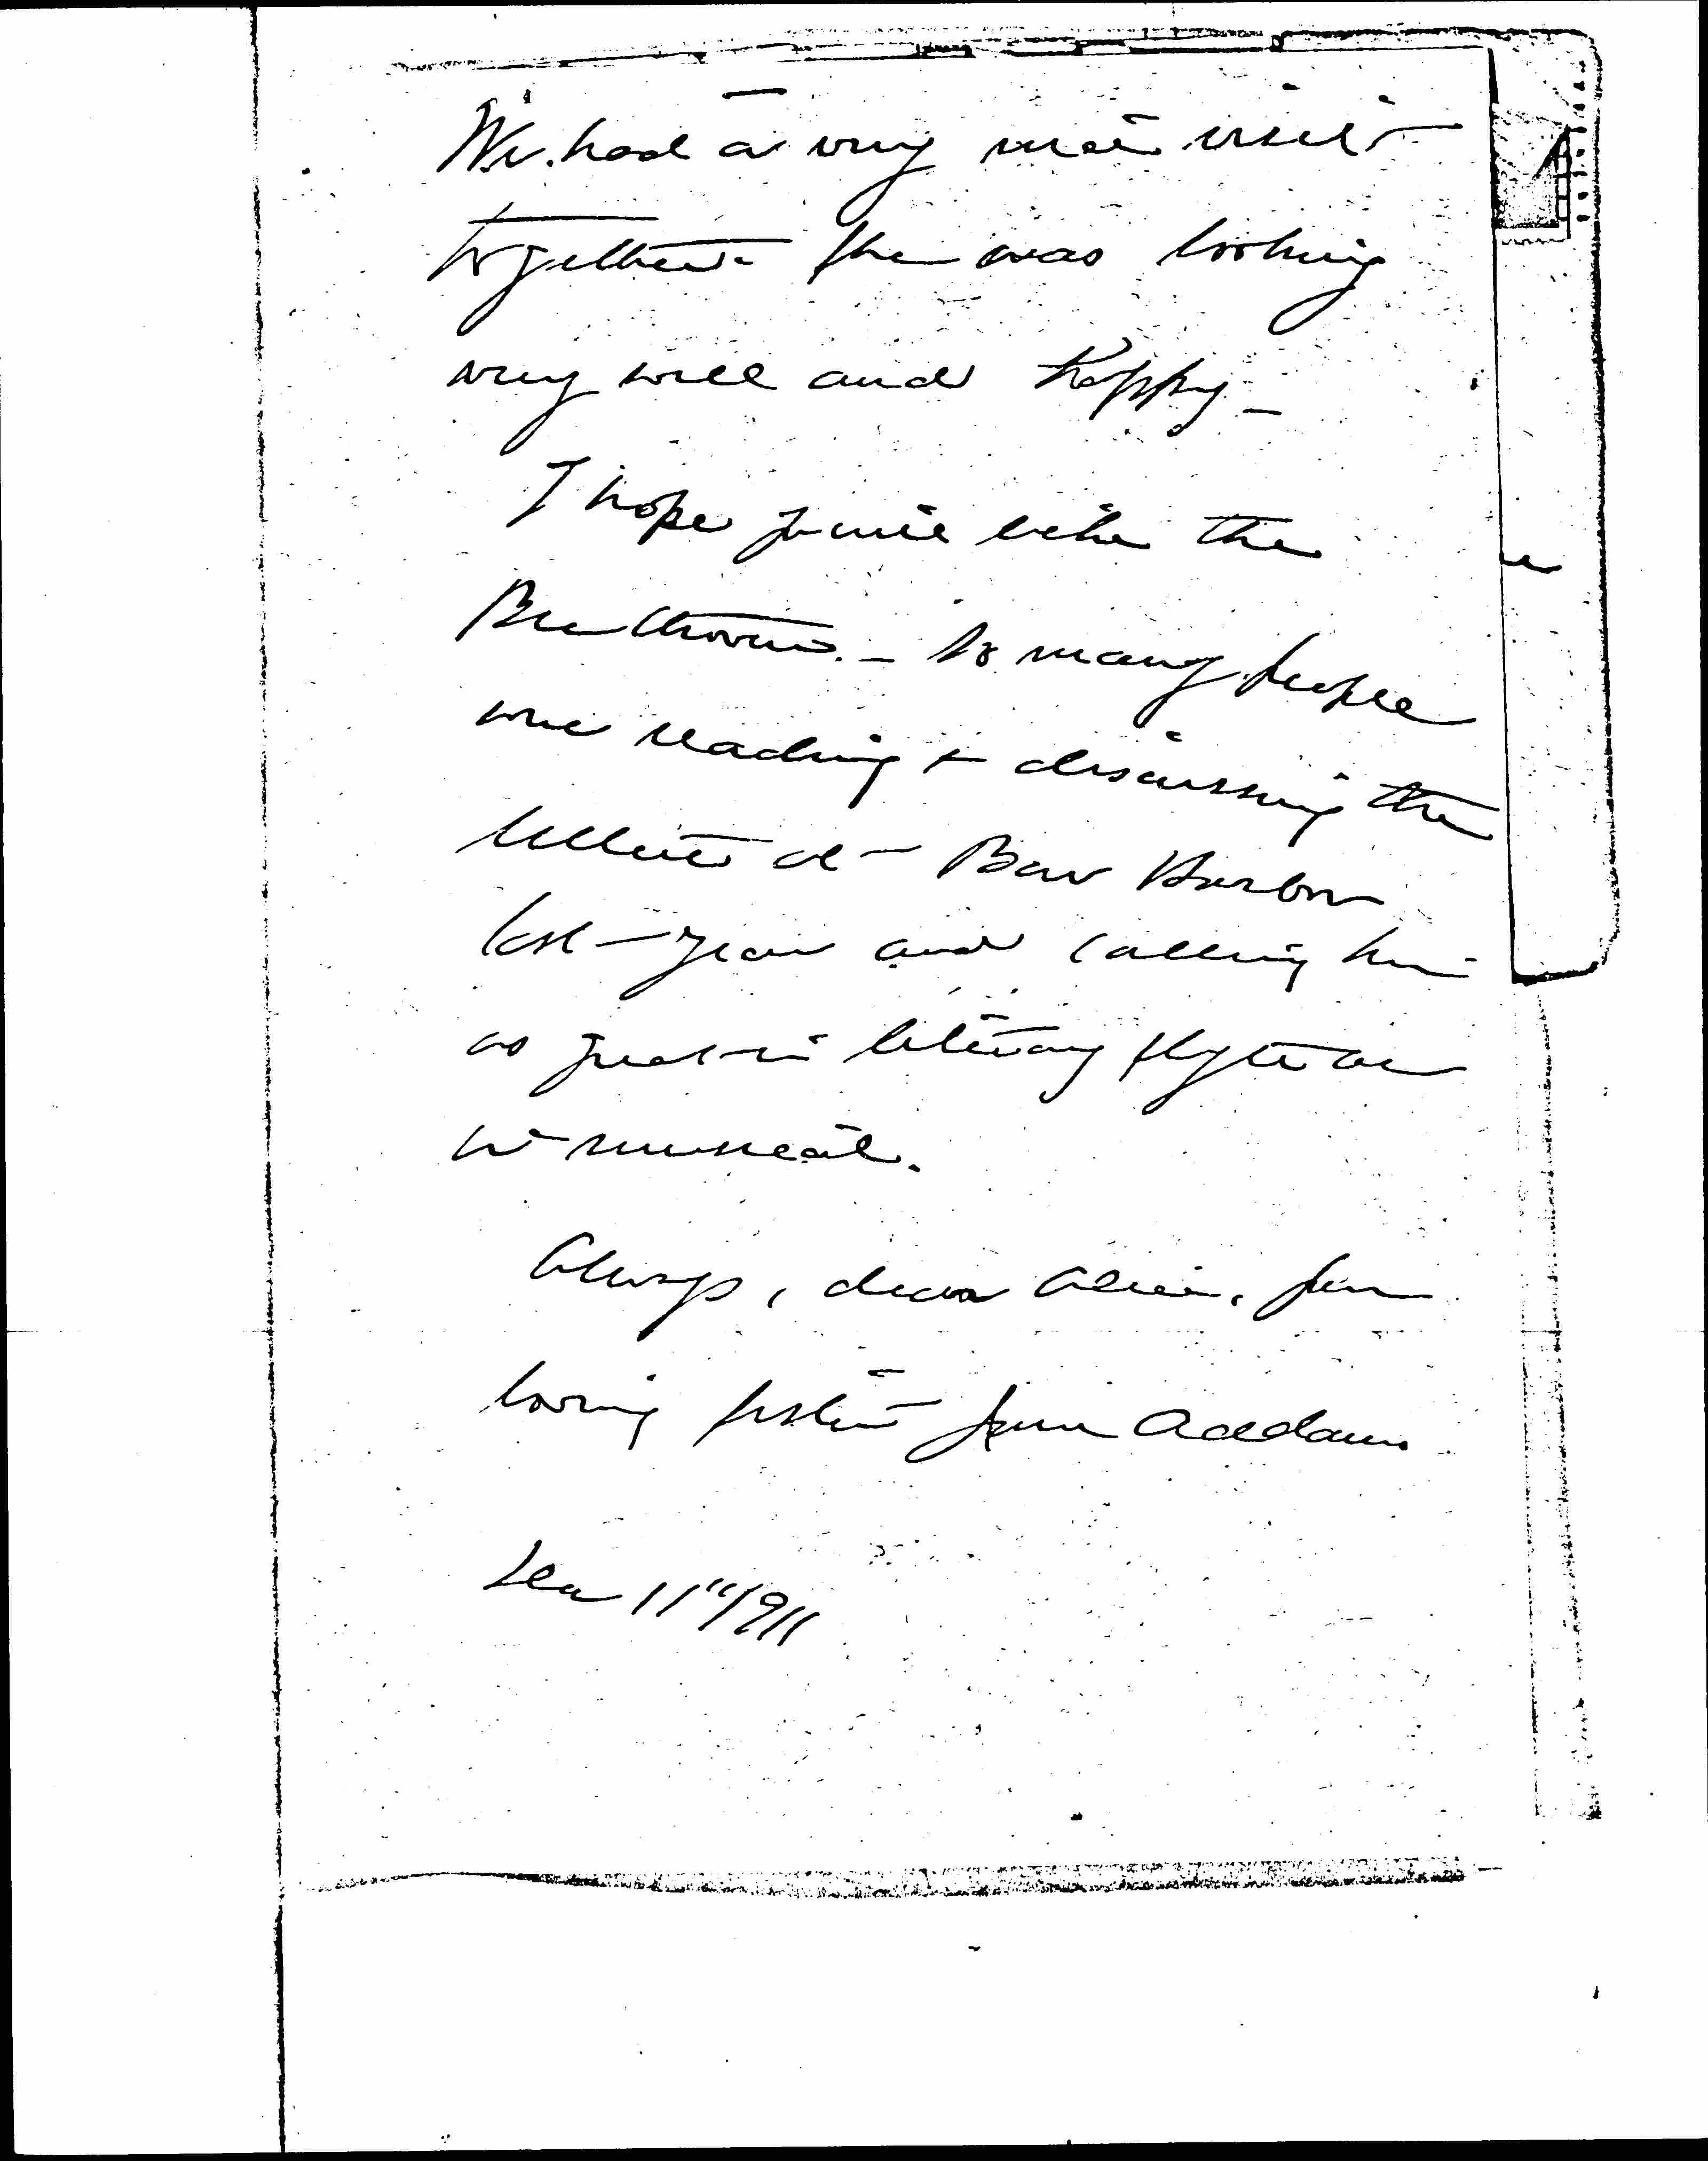 We had a very nice visit
together. She was looking
very well and happy –
I hope you will like the
Beethoven. – So many people
were reading & discussing the
letters at Bar Harbor
last year and calling him
as great in literary style as
in musical.
Always, dear Alice, your
loving sister Jane Addams
11"/911